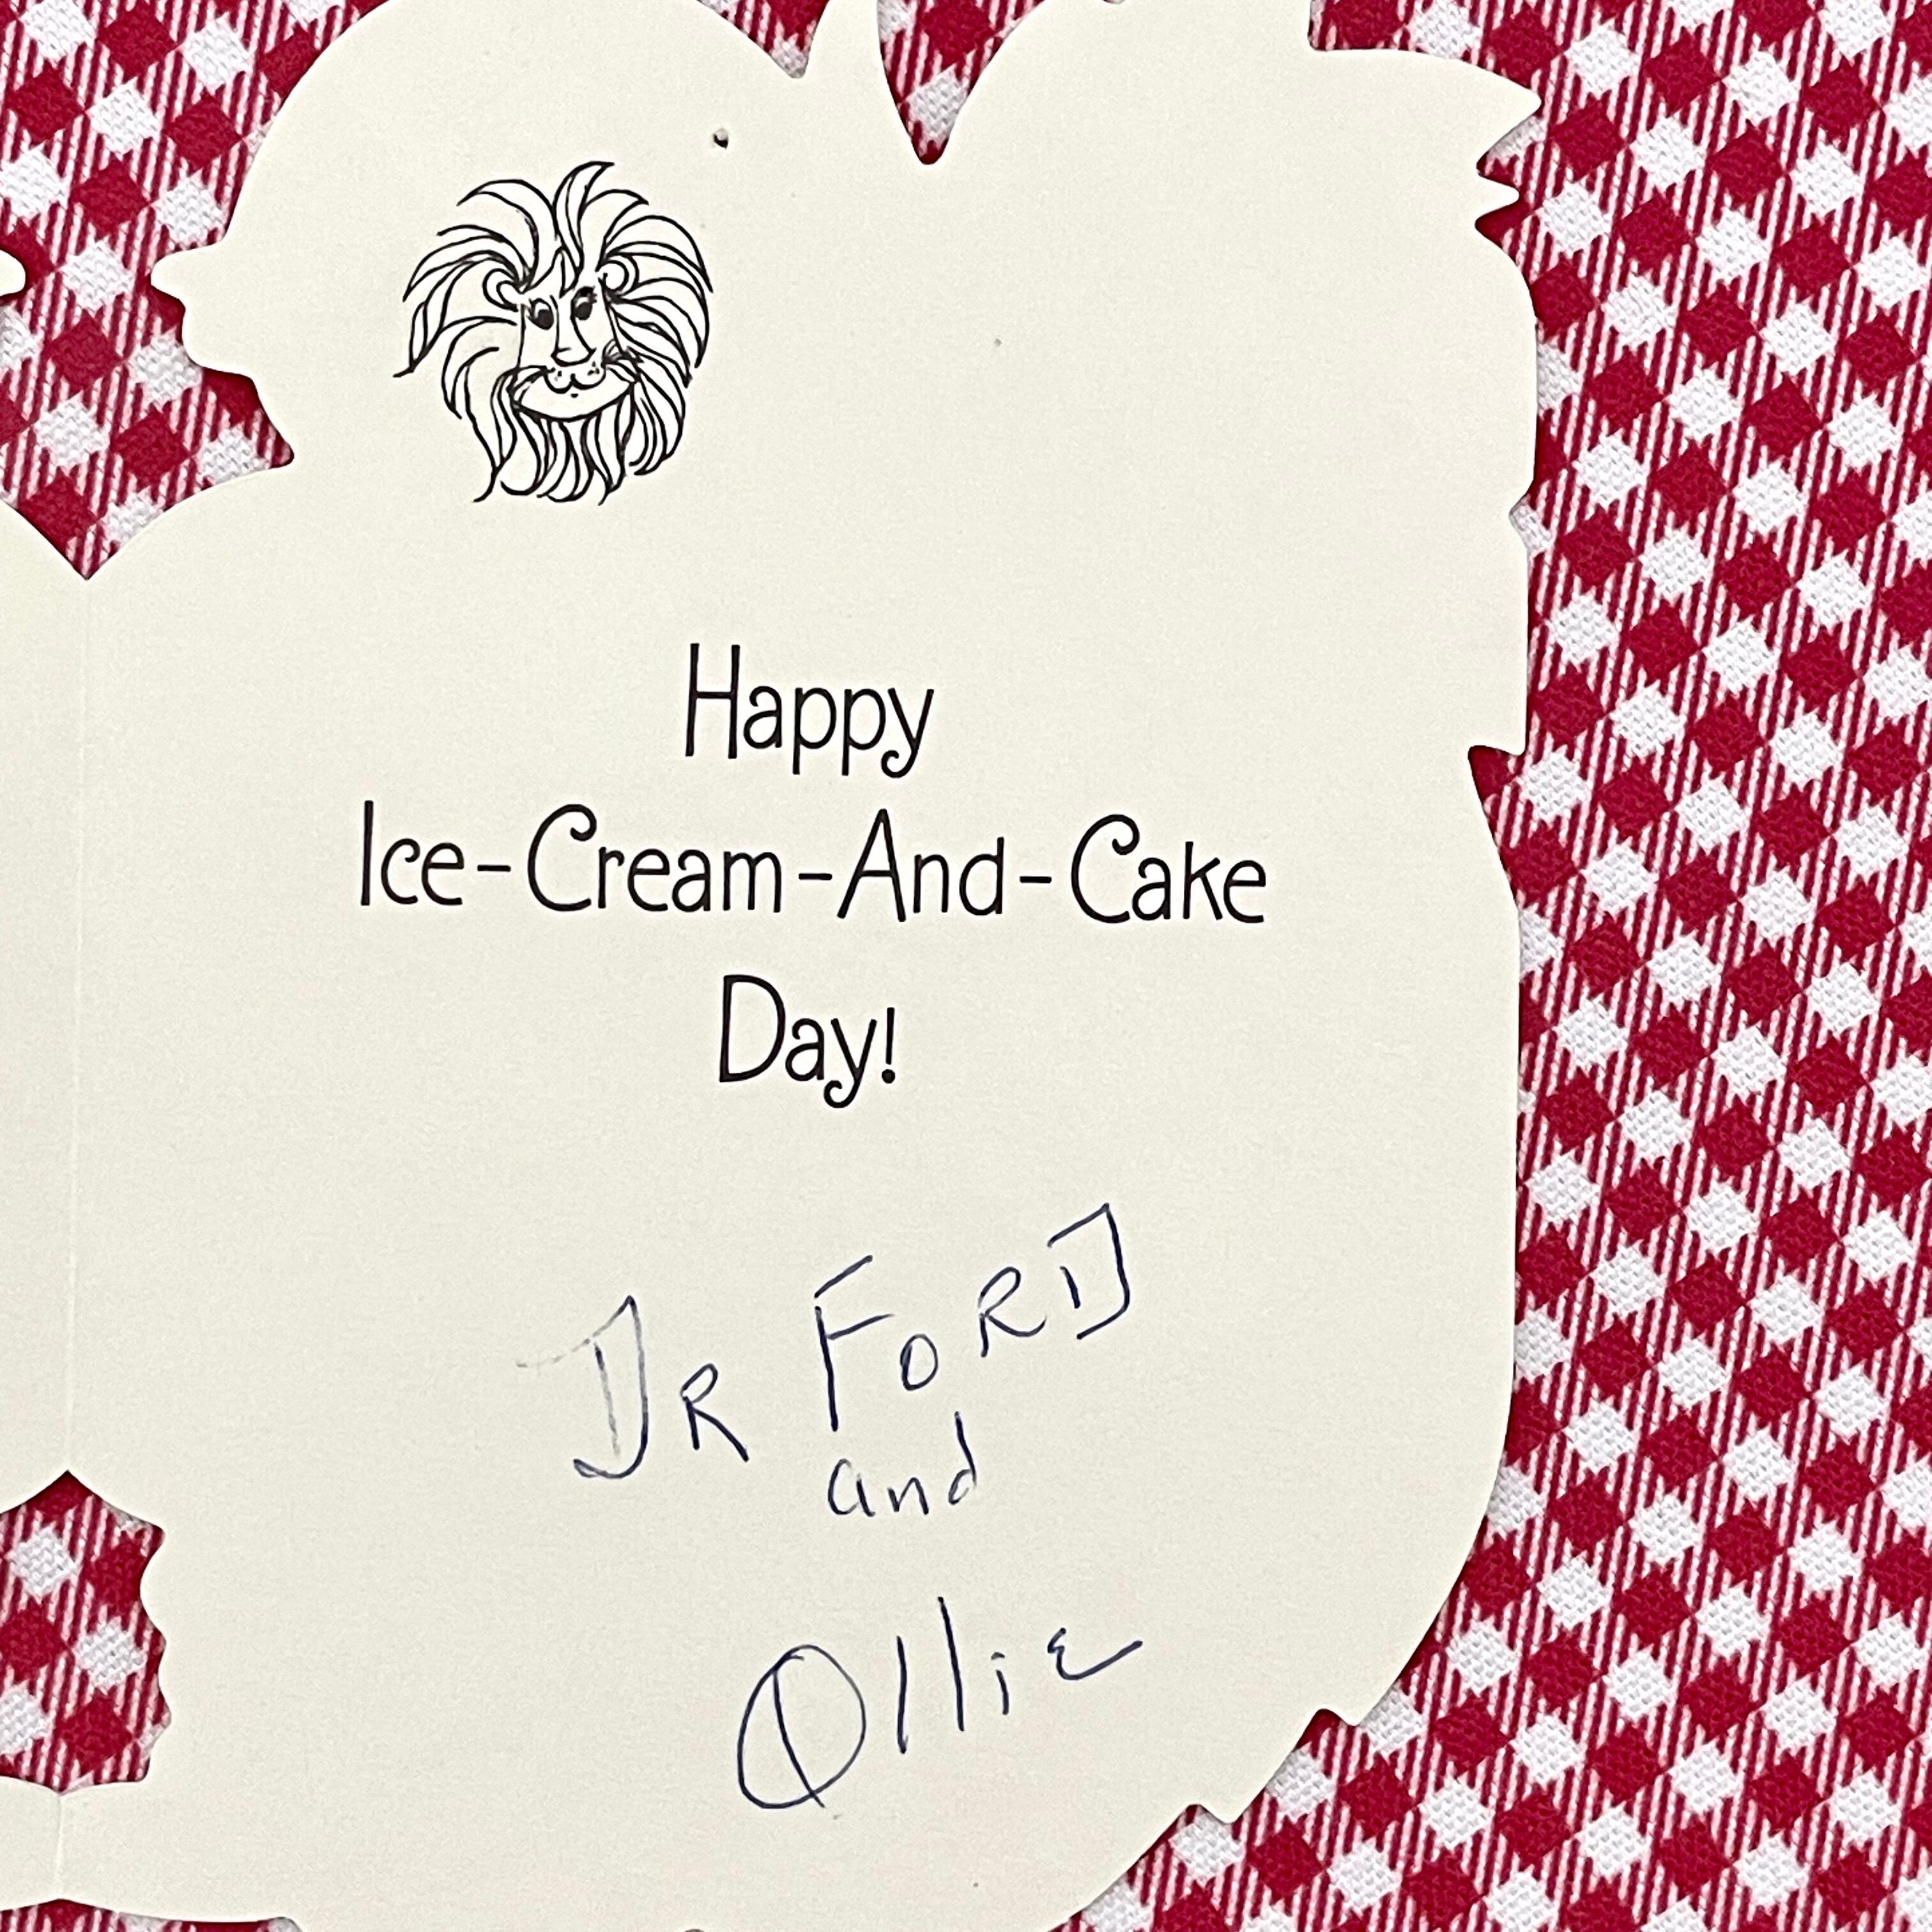 Happy
Ice-Cream-And-Cake
Day!
DR FORD
and
Ollie